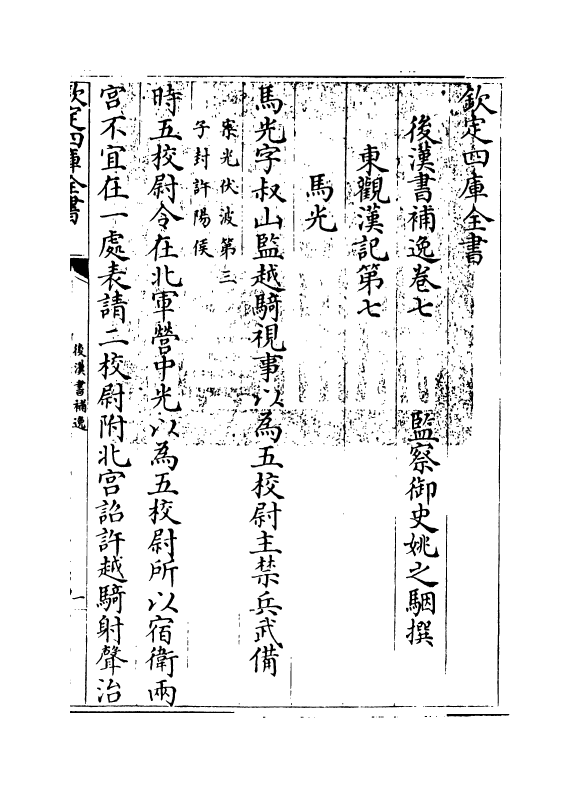 欽定四庫全書
後漢書補逸卷七
監察御史姚之駰撰
東觀漢記第七
馬光
馬光字叔山監越騎視事以為五校尉主禁兵武備
案光伏波第三
子封許陽侯
時五校尉令在北軍營中光以為五校尉所以宿衛兩
宮不宜在一處表請二校尉附北宮詔許越騎射聲治
欽定四庫全書
後漢書補逸
一